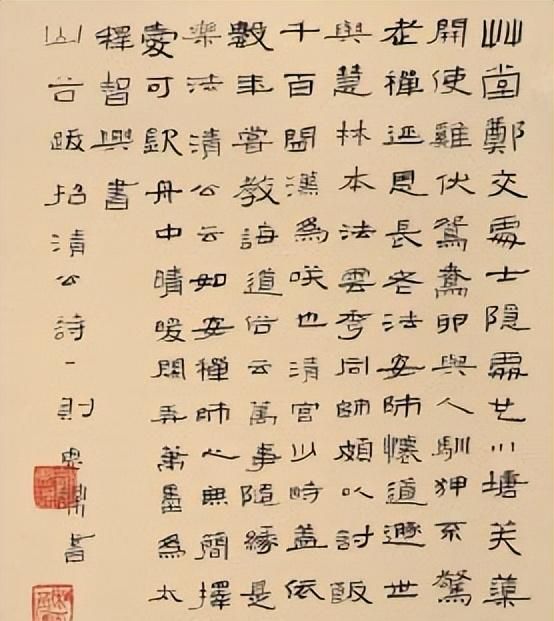 艸堂鄭交處士隱處也小塘芙蕖
開使雞伏鴛鴦卵與人馴狎不驚
老禪延恩長老法安師懷道遯世
與慧林本法雲秀同師頗以討飯
千百閒漢為咲也清官少時蓋依
數年嘗教誨道俗云萬事隨緣是
樂法清公云如安禪師心無簡擇
愛可欽舟中晴暖閑弄筆墨為太
釋智興書
山谷跋招清公詩一則書